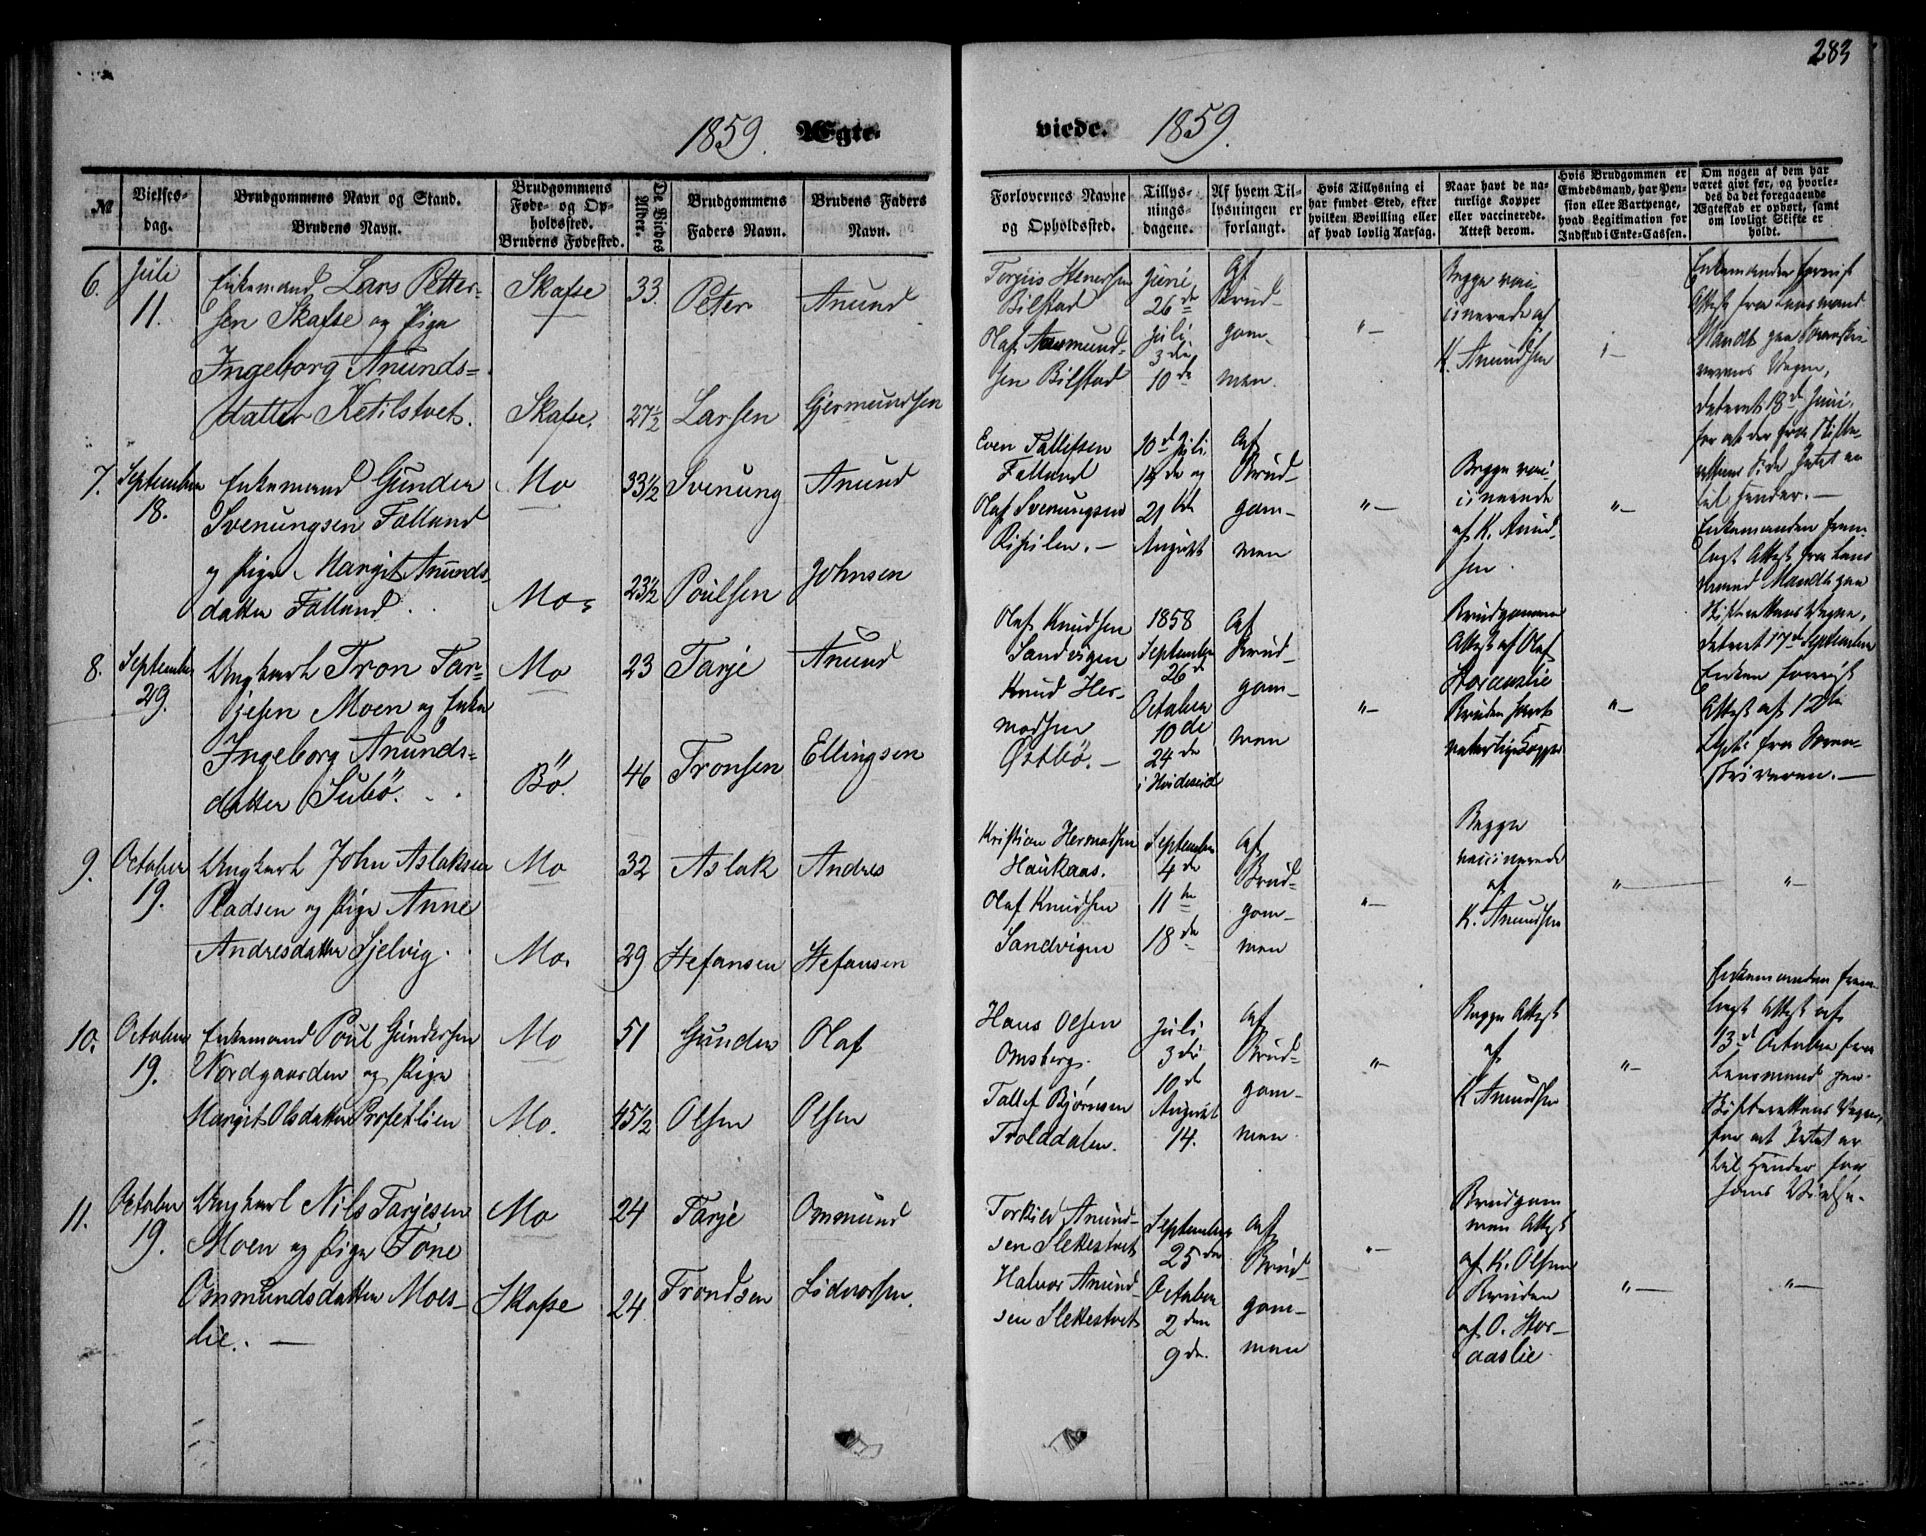 283
1859. Ægte-
viede. 1859.
№
Vielses-
dag.
Brudgommens Navn og Stand.
Brudens Navn.
Brudgommens
Føde- og Op-
holdssted.
Brudens Fødested.
De Viedes
Alder.
Brudgommens
Faders Navn.
Brudens Faders
Navn.
Forlovernes Navne
og Opholdssted.
Tillys-
nings-
dagene.
Af hvem Til-
lysningen er
forlangt.
Hvis Tillysning ei
har fundet Sted, efter
hvilken Bevilling eller
af hvad lovlig Aarsag.
Naar havt de na-
turlige Kopper
eller vaccinerede.
Attest derom.
Hvis Brudgommen er
Embedsmand, har Pen-
sion eller Vartpenge,
hvad Legitimation for
Indskud i Enke-Cassen.
Om nogen af dem har
været givt før, og hvorle-
des da det foregaaende
Ægteskab er ophørt, samt
om lovligt Skifte er
holdt.
6.
Juli
11.
Enkemand Lars Petter-
sen Skafse og Pige
Ingeborg Anunds-
datter Ketilstvet.
Skafse
Skafse.
33.
27½
Peter
Larsen
Anund
Gjermundsen
Torjus Stenersen
Bilstad
Olaf Aasmund-
sen Bilstad
Juni
26de
Juli
3die
10de
Af
Brud-
gom-
men.
"-
Begge vac-
cinerede af
K. Anundsen
Enkemanden foreviist
Attest fra Lensmand
Mandt paa Sorenskri-
verens Vegne,
dateret 18de Juni,
for at der fra Skifte-
rettens Side Intet er
til Hinder. —
7.
September
18.
Enkemand Gunder
Svenungsen Falland
og Pige Margit Anunds-
datter Falland.
Mo
Mo.
33½
23½
Svenung
Poulsen
Anund
Johnsen
Even Tallefsen
Falland
Olaf Svenungsen
10de Juli
14de og
21de
August
Af
Brud-
gom-
men
"-
Begge vac-
cinerede
af K. Anund-
sen.
"-
Enkemanden frem-
lagt Attest fra Lens-
mand Mandt paa
Skifterettens Vegne,
dateret 17de September
8.
September
29.
Ungkarl Tron Tar-
jesen Moen og Enke
Ingeborg Anunds-
datter Subö.
Mo
Bö.
23
46
Tarje
Tronsen
Anund
Ellingsen
Olaf Knudsen
Sandvigen
Knud Her-
modsen
Östbö. —
1858
September
26de
October
10de
24de
i Hvideseid
Af
Brud-
gom-
men
"-
Brudgommen
Attest af Olaf
Storaaslie
Bruden havt
naturlige Kopper
"-
Enken foreviist
Attest af 12te
fra Soren-
skriveren. —
9.
October
19.
Ungkarl John Aslaksen
Pladsen og Pige Anne
Andresdatter Sjelvig.
Mo
Mo.
32
29
Aslak
Stefansen
Andres
Stefansen
Kristian Hermodsen
Haukaas.
Olaf Knudsen
Sandvigen
September
4de
11te
18de
Af
Brud-
gom-
men
"-
Begge
vaccinerede
af
K. Anundsen
"-
"-
10.
October
19.
Enkemand Poul Gundersen
Nordgaarden og Pige
Margit Olsdatter Rosfetlien
Mo
Mo.
51
45½
Gunder
Olsen
Olaf
Olsen
Hans Olsen
Omsberg.
Tallef Bjørnsen
Trolddalen.
Juli
3die
10de
August
14.
Af
Brud-
gom-
men.
"-
Begge Attest
af
K Anundsen
"-
Enkemanden frem-
lagt Attest af
13de October fra
Lensmand paa
Skifterettens Vegne,
for at Intet er
til Hinder for
hans Vielse.
11.
October
19.
Ungkarl Nils Tarjesen
Moen og Pige Tone
Ommundsdatter Moes-
lie. —
Mo
Skafse
24
24
Tarje
Trondsen
Ommund
Sidvorsen.
Torkild Anund-
sen Slekestvet
Halvor Anund-
sen Slekestvet
September
25de
October
2den
9de.
Af
Brud-
gom-
men
"-
Brudgom
men Attest
af K. Olsen
Bruden
af O. Stor-
aaslie.
"-
"-